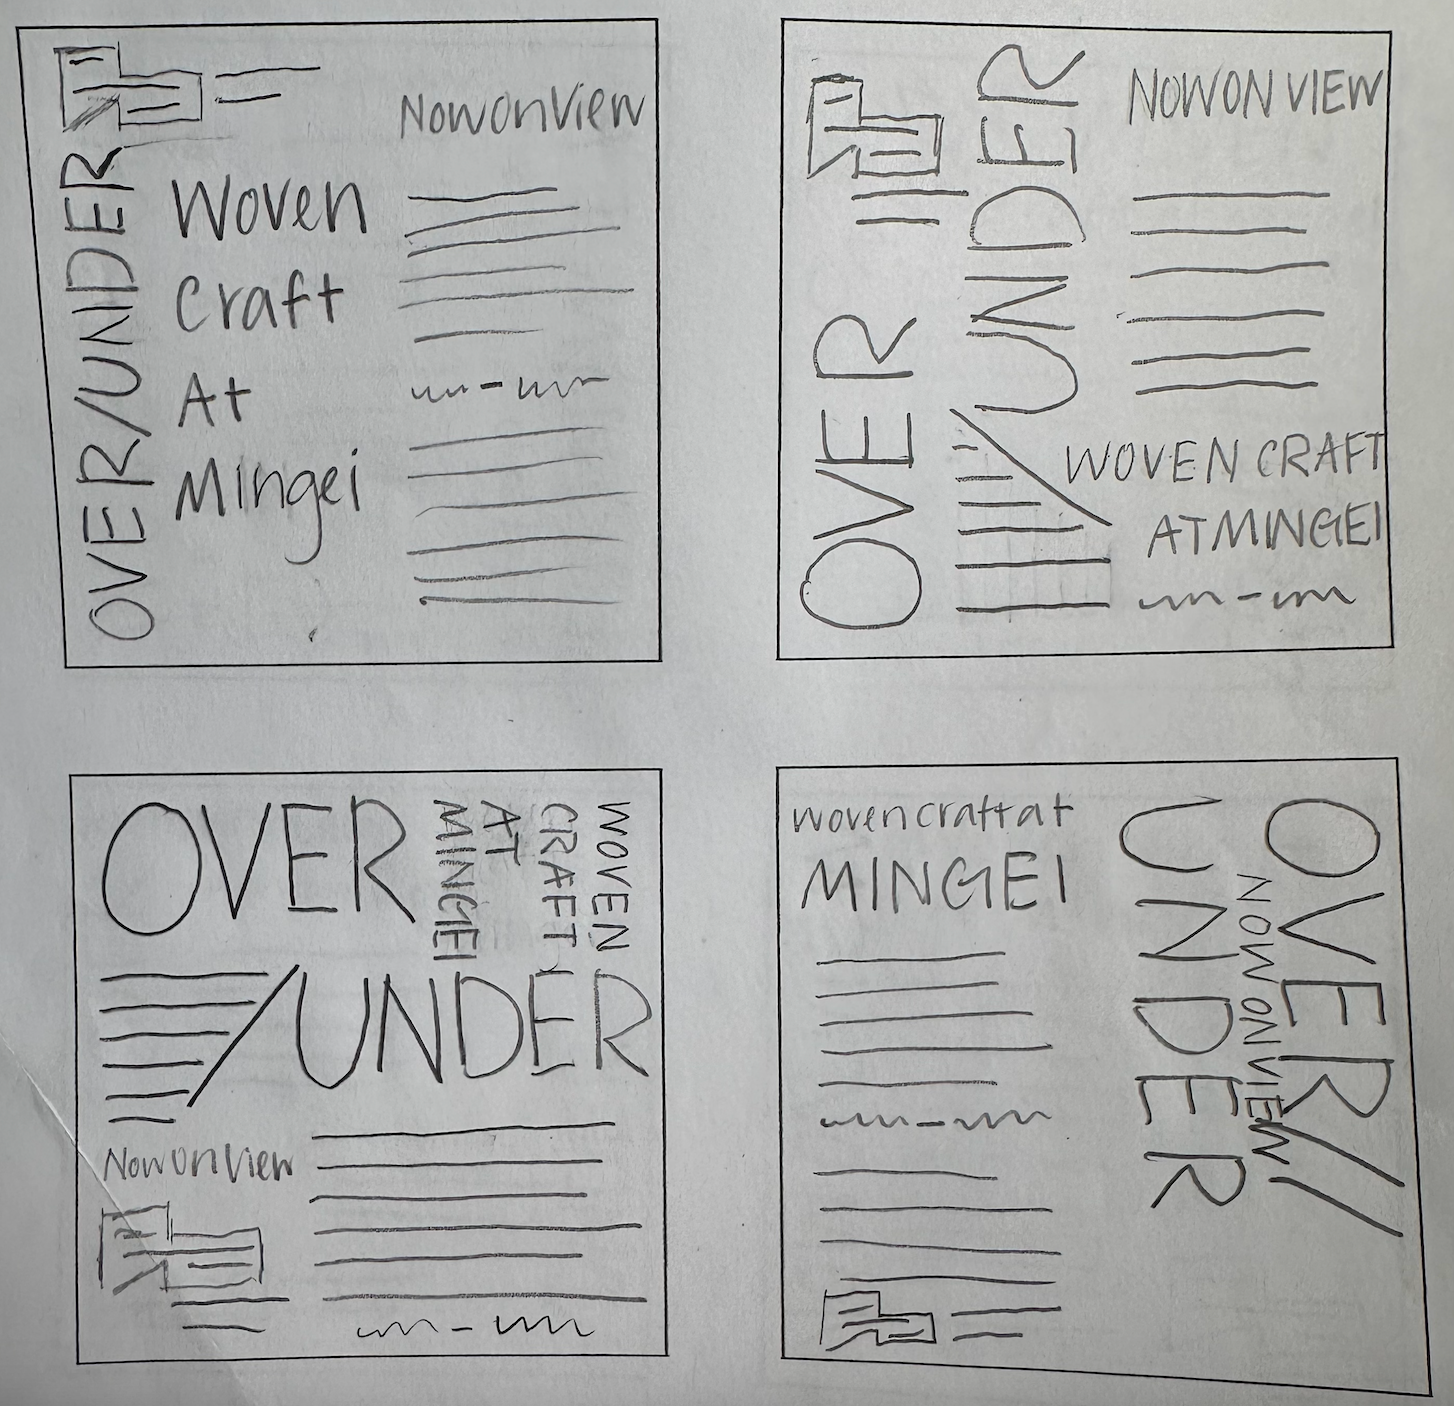 OVER/UNDER
NowonView
Woven
Craft
At
Mingei
OVER
/UNDER
NOWON VIEW
WOVEN CRAFT
ATMINGEI
OVER
WOVEN
CRAFT
AT
MINGEI
/UNDER
Nowonview
wovencraftat
MINGEI
OVER//
NOW ONVIEW
UNDER